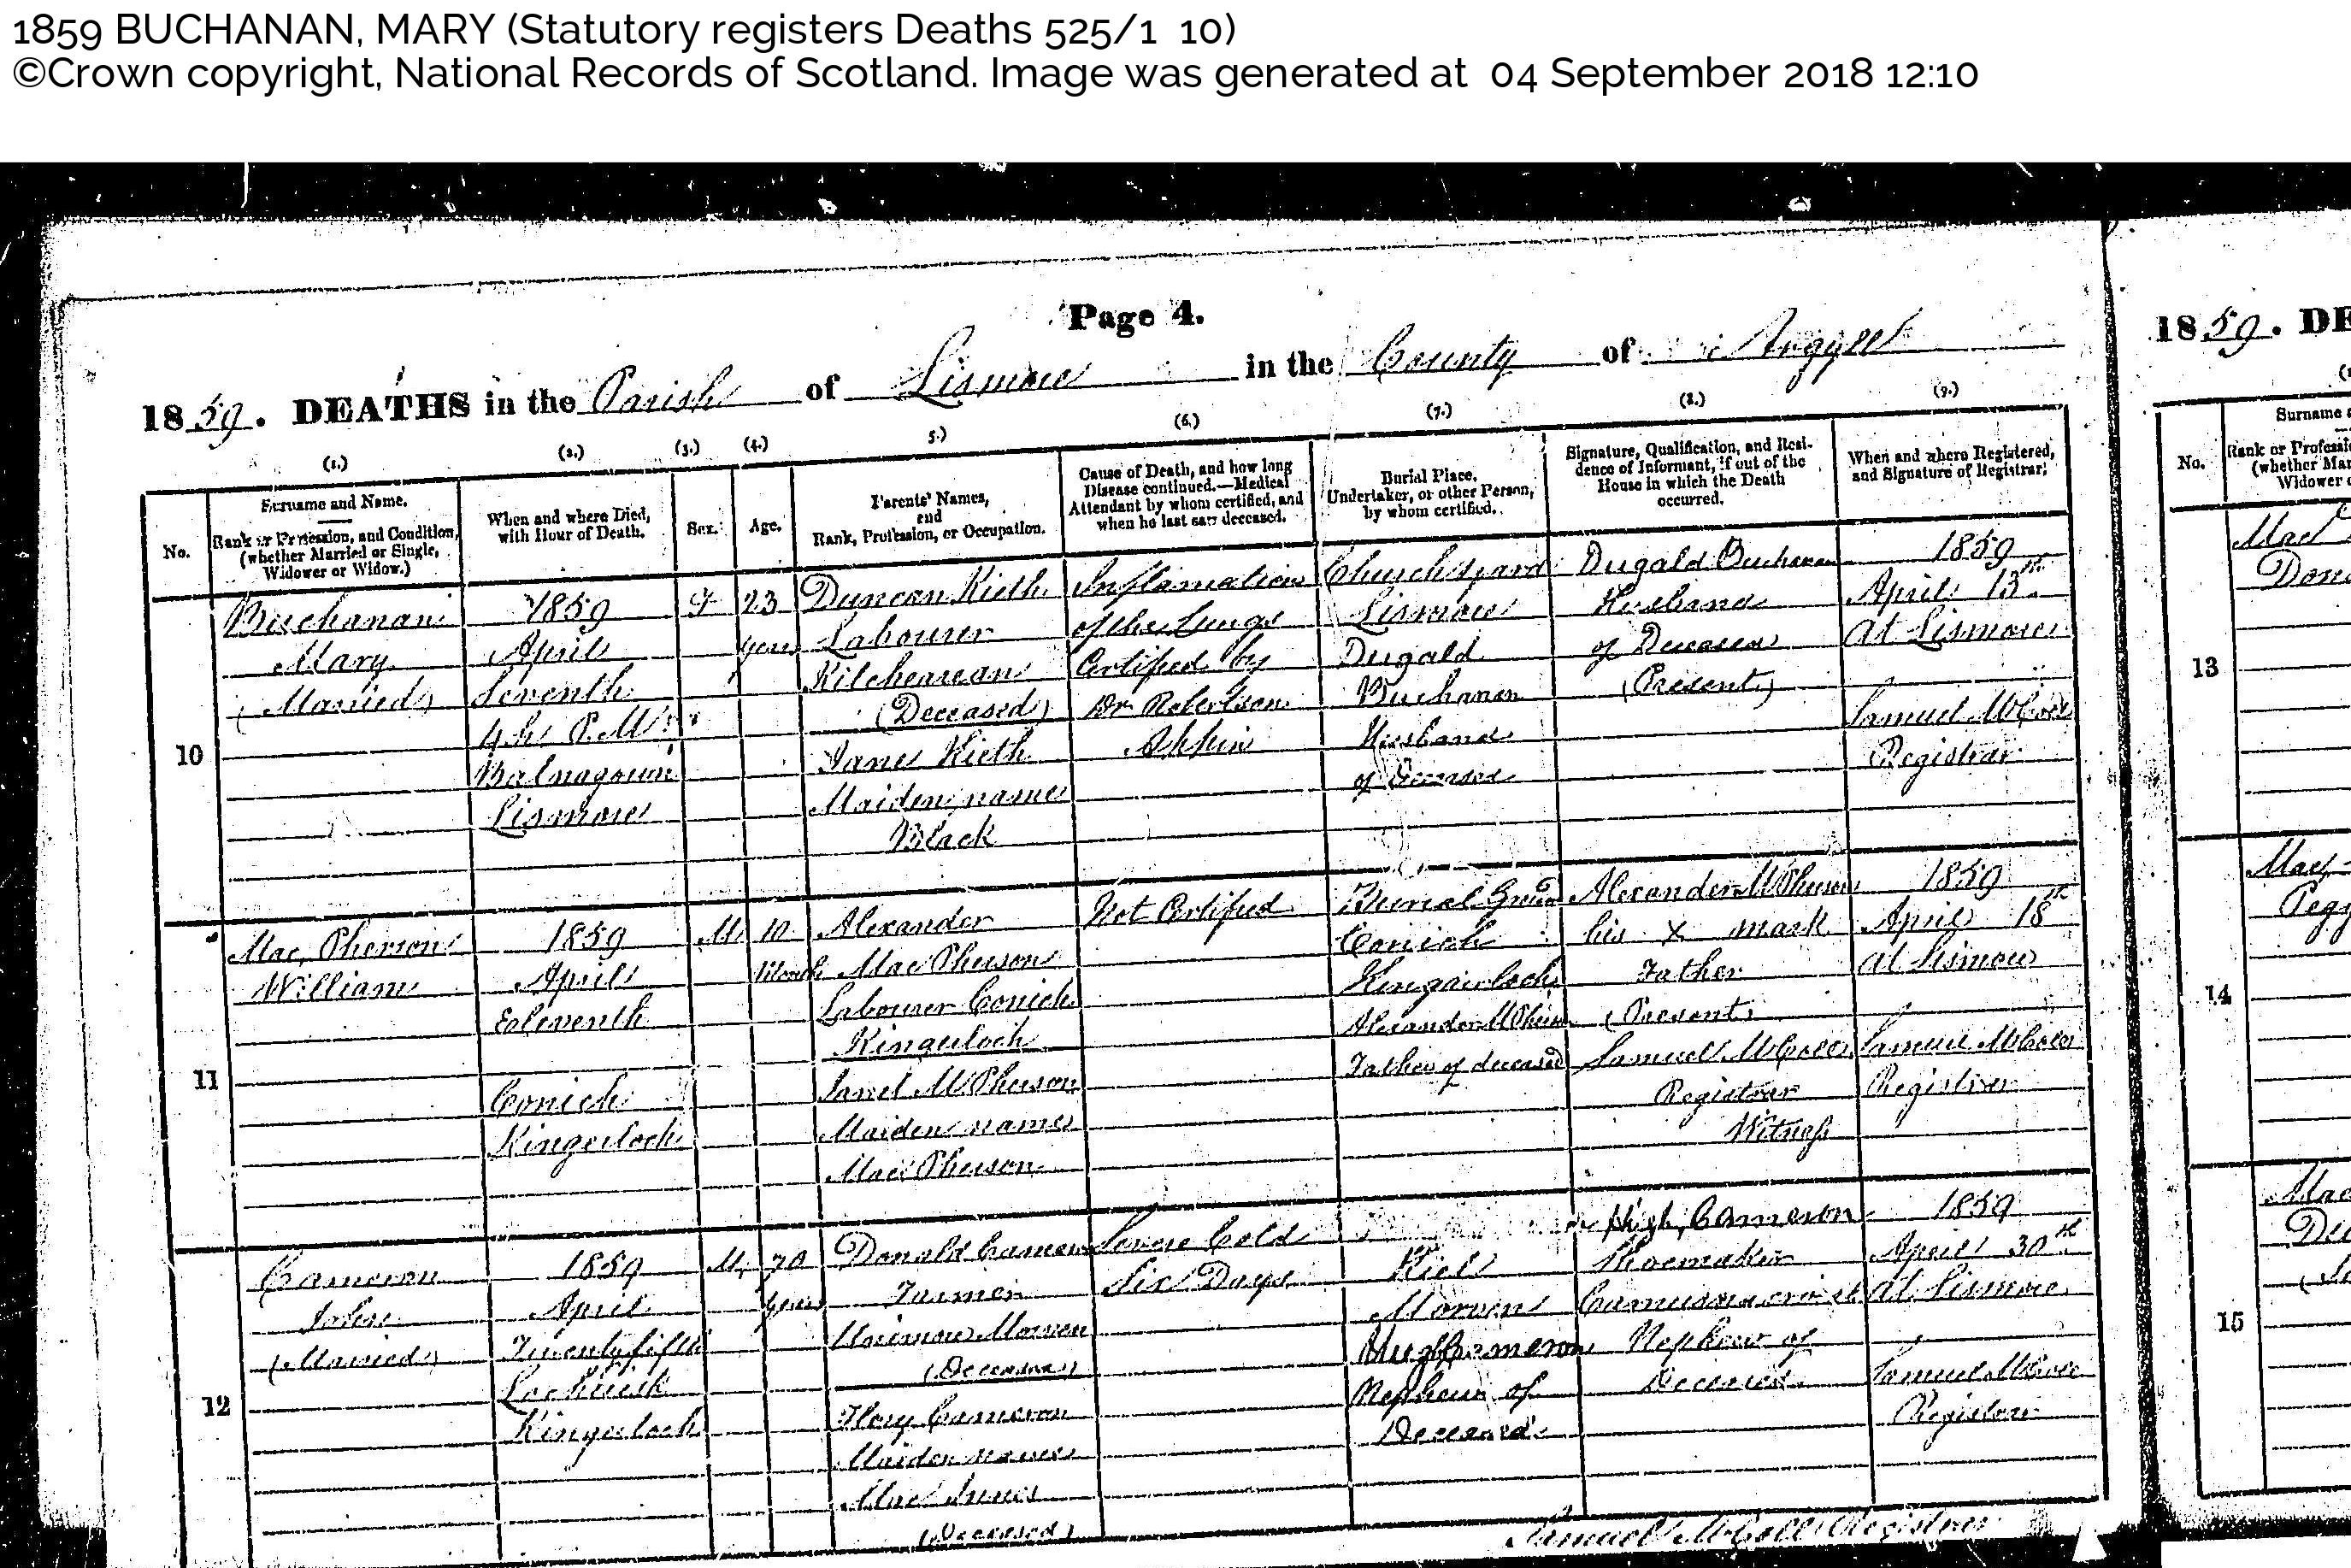 1859 BUCHANAN, MARY (Statutory registers Deaths 525/1 10)
©Crown copyright, National Records of Scotland. Image was generated at 04 September 2018 12:10
Page 4.
1859. DEATHS in the Parish of Lismore in the County of Argyll
1859. DE
(1.) (2.) (3.) (4.) 5.) (6.) (7.) (8.) (9.)
No.
Surname and Name.
Rank or Profession, and Condition,
(whether Married or Single,
Widower or Widow.)
When and where Died,
with Hour of Death.
Sex.
Age.
Parents' Names,
and
Rank, Profession, or Occupation.
Cause of Death, and how long
Disease continued.—Medical
Attendant by whom certified, and
when he last saw deceased.
Burial Place.
Undertaker, or other Person,
by whom certified.
Signature, Qualification, and Resi-
dence of Informant, if out of the
House in which the Death
occurred.
When and where Registered,
and Signature of Registrar.
10
Buchanan
Mary
(Married)
1859
April
Seventh
4 h P.M.
Balnagown
Lismore
F
23
years
Duncan Kieth
Labourer
Kilcheanean
(Deceased)
Jane Kieth
Maiden name
Black
Inflamation
of the Lungs
Certified by
Dr Robertson
Appin
Churchyard
Lismore
Dugald
Buchanan
Husband
of Deceased
Dugald Buchanan
Husband
of Deceased
(Present)
1859
April 13th
at Lismore
Samuel McColl
Registrar
11
Mac Pherson
William
1859
April
Eleventh
Conich
Kingerloch
M
10
Month
Alexander
Mac Pherson
Labourer Conich
Kingerloch
Janet McPherson
Maiden name
Mac Pherson
Not Certified
Burial Ground
Conich
Kingairloch
Alexander McPherson
Father of deceased
Alexander McPherson
his x mark
Father
(Present)
Samuel McColl
Registrar
Witness
1859
April 18th
at Lismore
Samuel McColl
Registrar
12
Cameron
John
(Married)
1859
April
Twenty fifth
Lochuisk
Kingerloch
M
70
years
Donald Cameron
Farmer
Morven
(Deceased)
Flory Cameron
Maiden name
Mac Innes
(Deceased)
Severe Cold
Six Days
Kiel
Morven
Hugh Cameron
Nephew of
Deceased
Hugh Cameron
Shoemaker
Nephew of
Deceased
1859
April 30th
at Lismore
Samuel McColl
Registrar
Samuel McColl Registrar
No.
Surname a
Rank or Professi
(whether Mar
Widower o
13
Mac
Don
14
Mac
Pegg
15
Mac